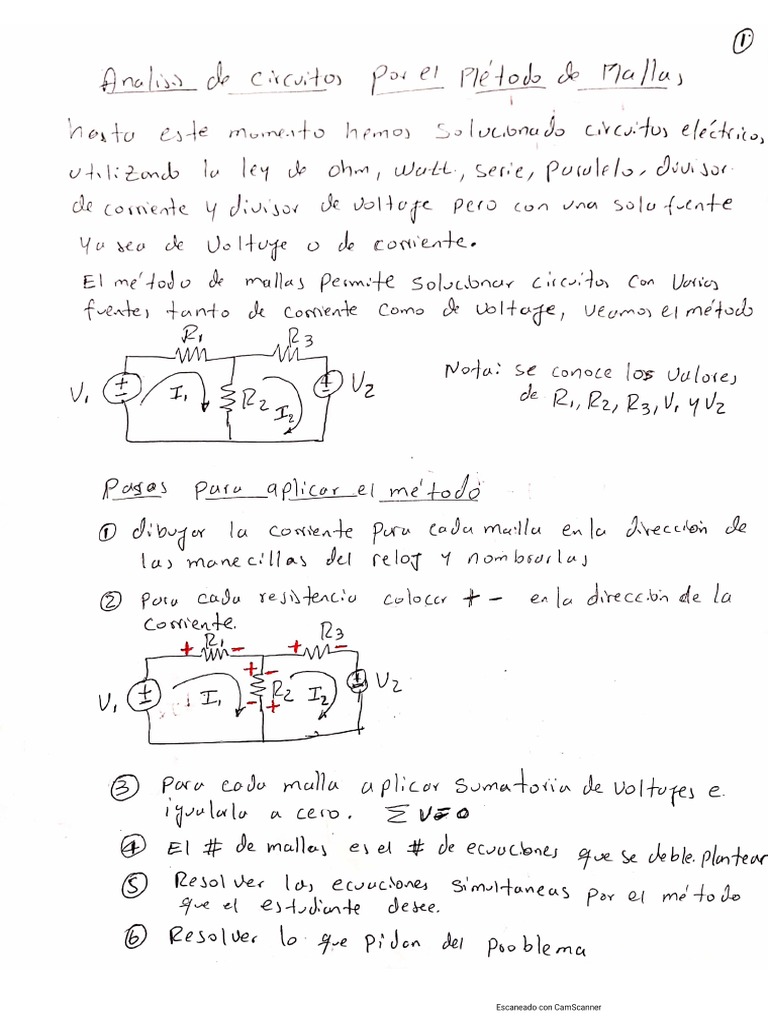 ①
Analisis de circuitos por el Método de Mallas
hasta este momento hemos Solucionado circuitos eléctricos,
utilizando la ley de ohm, watt, serie, paralelo, divisor
de corriente y divisor de voltage pero con una sola fuente
ya sea de Voltage o de corriente.
El método de mallas permite solucionar circuitos con varias
fuentes tanto de corriente como de voltage, veamos el método
R1 R3
V1 + - I1 R2 I2 + V2
Nota: se conoce los valores
de R1, R2, R3, V1 y V2
Pasos para aplicar el método
① dibujar la corriente para cada malla en la dirección de
las manecillas del reloj y nombrarlas
② Para cada resistencia colocar + - en la dirección de la
corriente.
+ R1 - + R3 -
V1 + - I1 + - R2 - + I2 V2
③ Para cada malla aplicar sumatoria de voltages e
igualarla a cero. Σ V=0
④ El # de mallas es el # de ecuaciones que se deble plantear
⑤ Resolver las ecuaciones simultaneas por el método
que el estudiante desee.
⑥ Resolver lo que pidan del problema
Escaneado con CamScanner